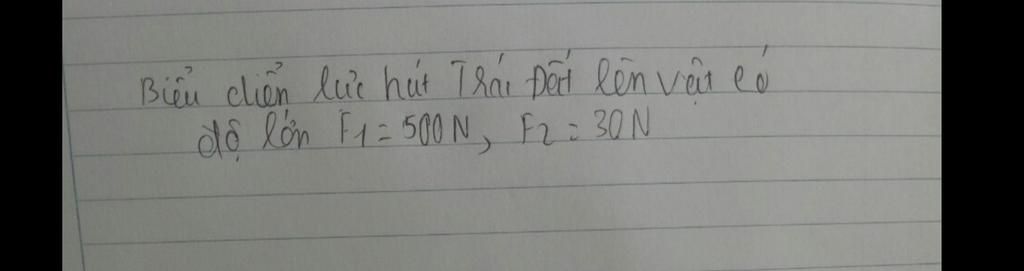 Biểu diễn lực hút Trái Đất lên vật có
độ lớn F1 = 500N, F2 = 30N